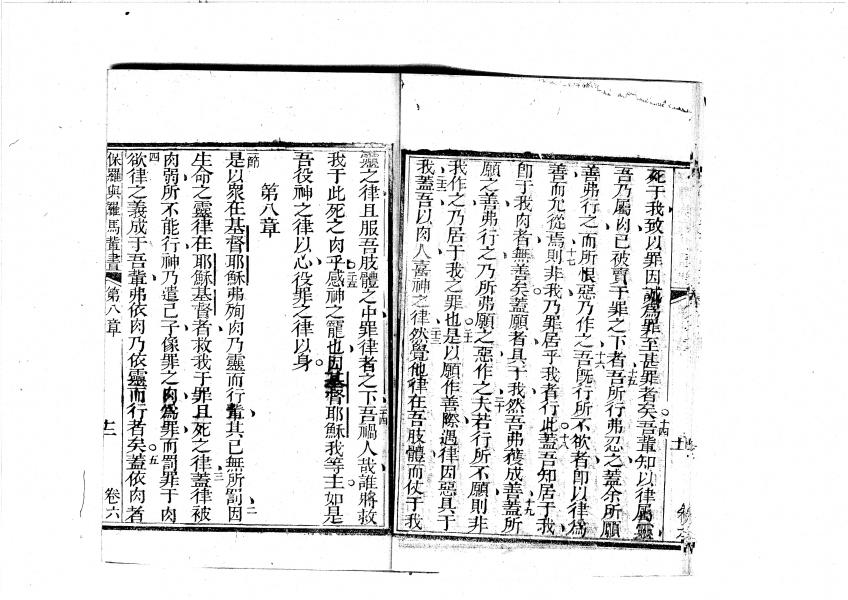 死于我致以罪因誡爲罪至甚罪者矣吾輩知以律屬靈
十四
吾乃屬肉已被賣于罪之下者吾所行弗忍之蓋余所願
十五
善弗行之而所恨惡乃作之吾旣行所不欲者卽以律爲
十六
善而允從焉則非我乃罪居乎我者行此蓋吾知居于我
十七 十八
卽于我肉者無善矣蓋願者具于我然吾弗獲成善蓋所
十九
願之善弗行之乃所弗願之惡作之夫若行所不願則非
二十
我作之乃居于我之罪也是以願作善際遇律因惡具于
我蓋吾以肉人喜神之律然覺他律在吾肢體而仗于我
二三
靈之律且服吾肢體之中罪律者之下吾禍人哉誰將救
二四
我于此死之肉乎感神之寵也因基督耶穌我等主如是
二五
吾役神之律以心役罪之律以身
第八章
節
是以衆在基督耶穌弗殉肉乃靈而行輩其已無所罰因
二
生命之靈律在耶穌基督者救我于罪且死之律蓋律被
三
肉弱所不能行神乃遣己子像罪之肉爲罪而罰罪于肉
四
欲律之義成于吾輩弗依肉乃依靈而行者矣蓋依肉者
五
保羅與羅馬輩書
第八章
十二
卷六